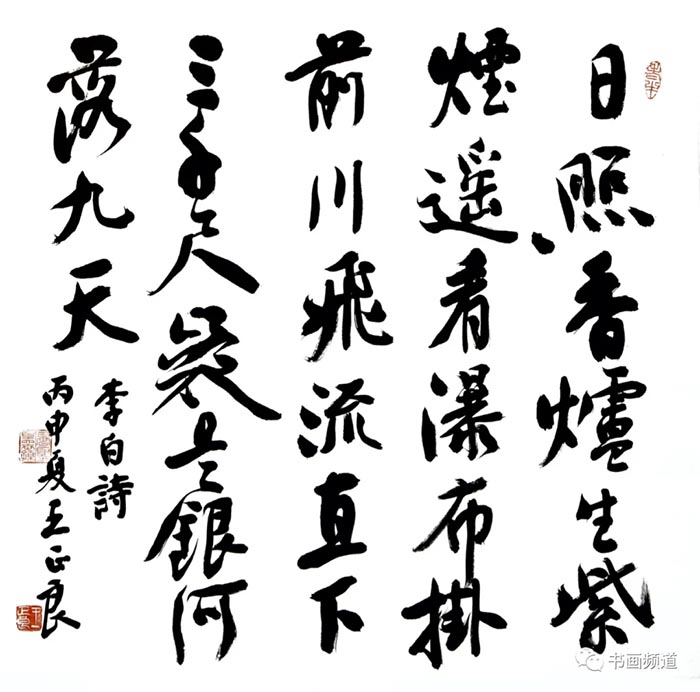 日照香爐生紫
煙遥看瀑布掛
前川飛流直下
三千尺疑是銀河
落九天
李白詩
丙申夏王正良
书画频道